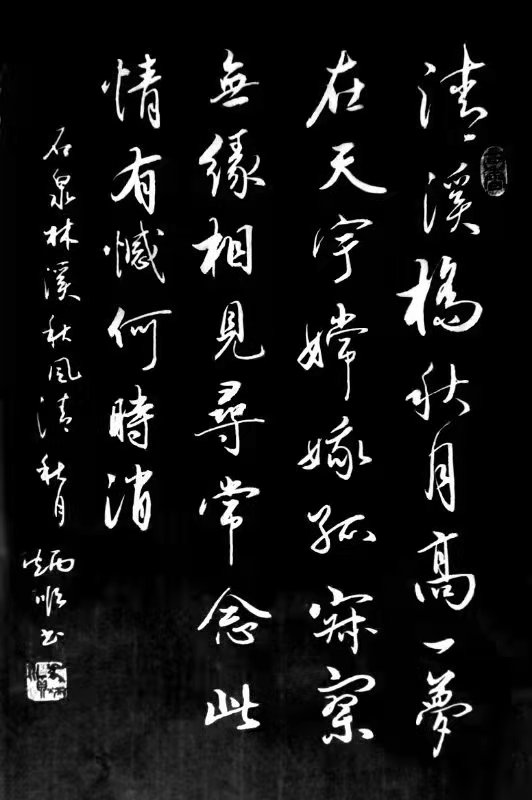 清溪橋秋月高一夢
在天宇嫦娥孤寂寞
無緣相見尋常念此
情有憾何時消
石泉林溪秋風清秋月
炳順书